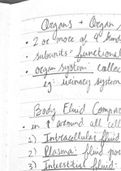 Organs + Organ
• 2 or more of 4 kinds
• subunits: functional
• organ system: collec
eg: urinary system
Body Fluid Compar
• in & around all cell
1) Intracellular fluid
2) Plasma: fluid por
3) Interstitial fluid: